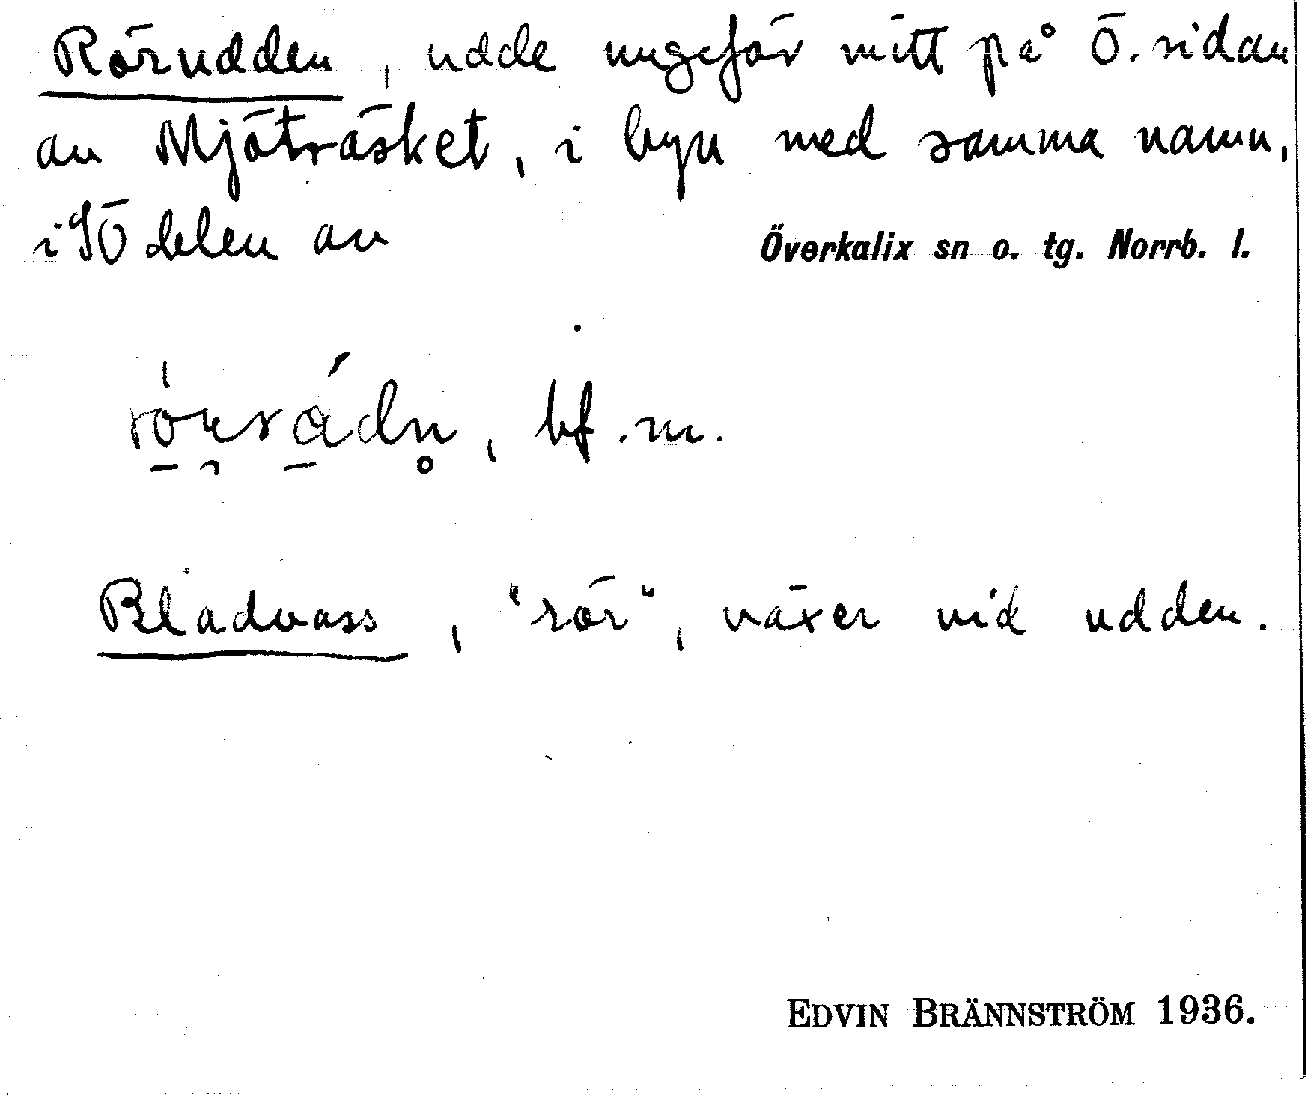 Rörudden, udde ungefär mitt på Ö. sidan
av Mjöträsket, i byn med samma namn,
i SÖ delen av Överkalix sn o. tg. Norrb. l.
bf. m.
Bladvass, "rör", växer vid udden.
EDVIN BRÄNNSTRÖM 1936.